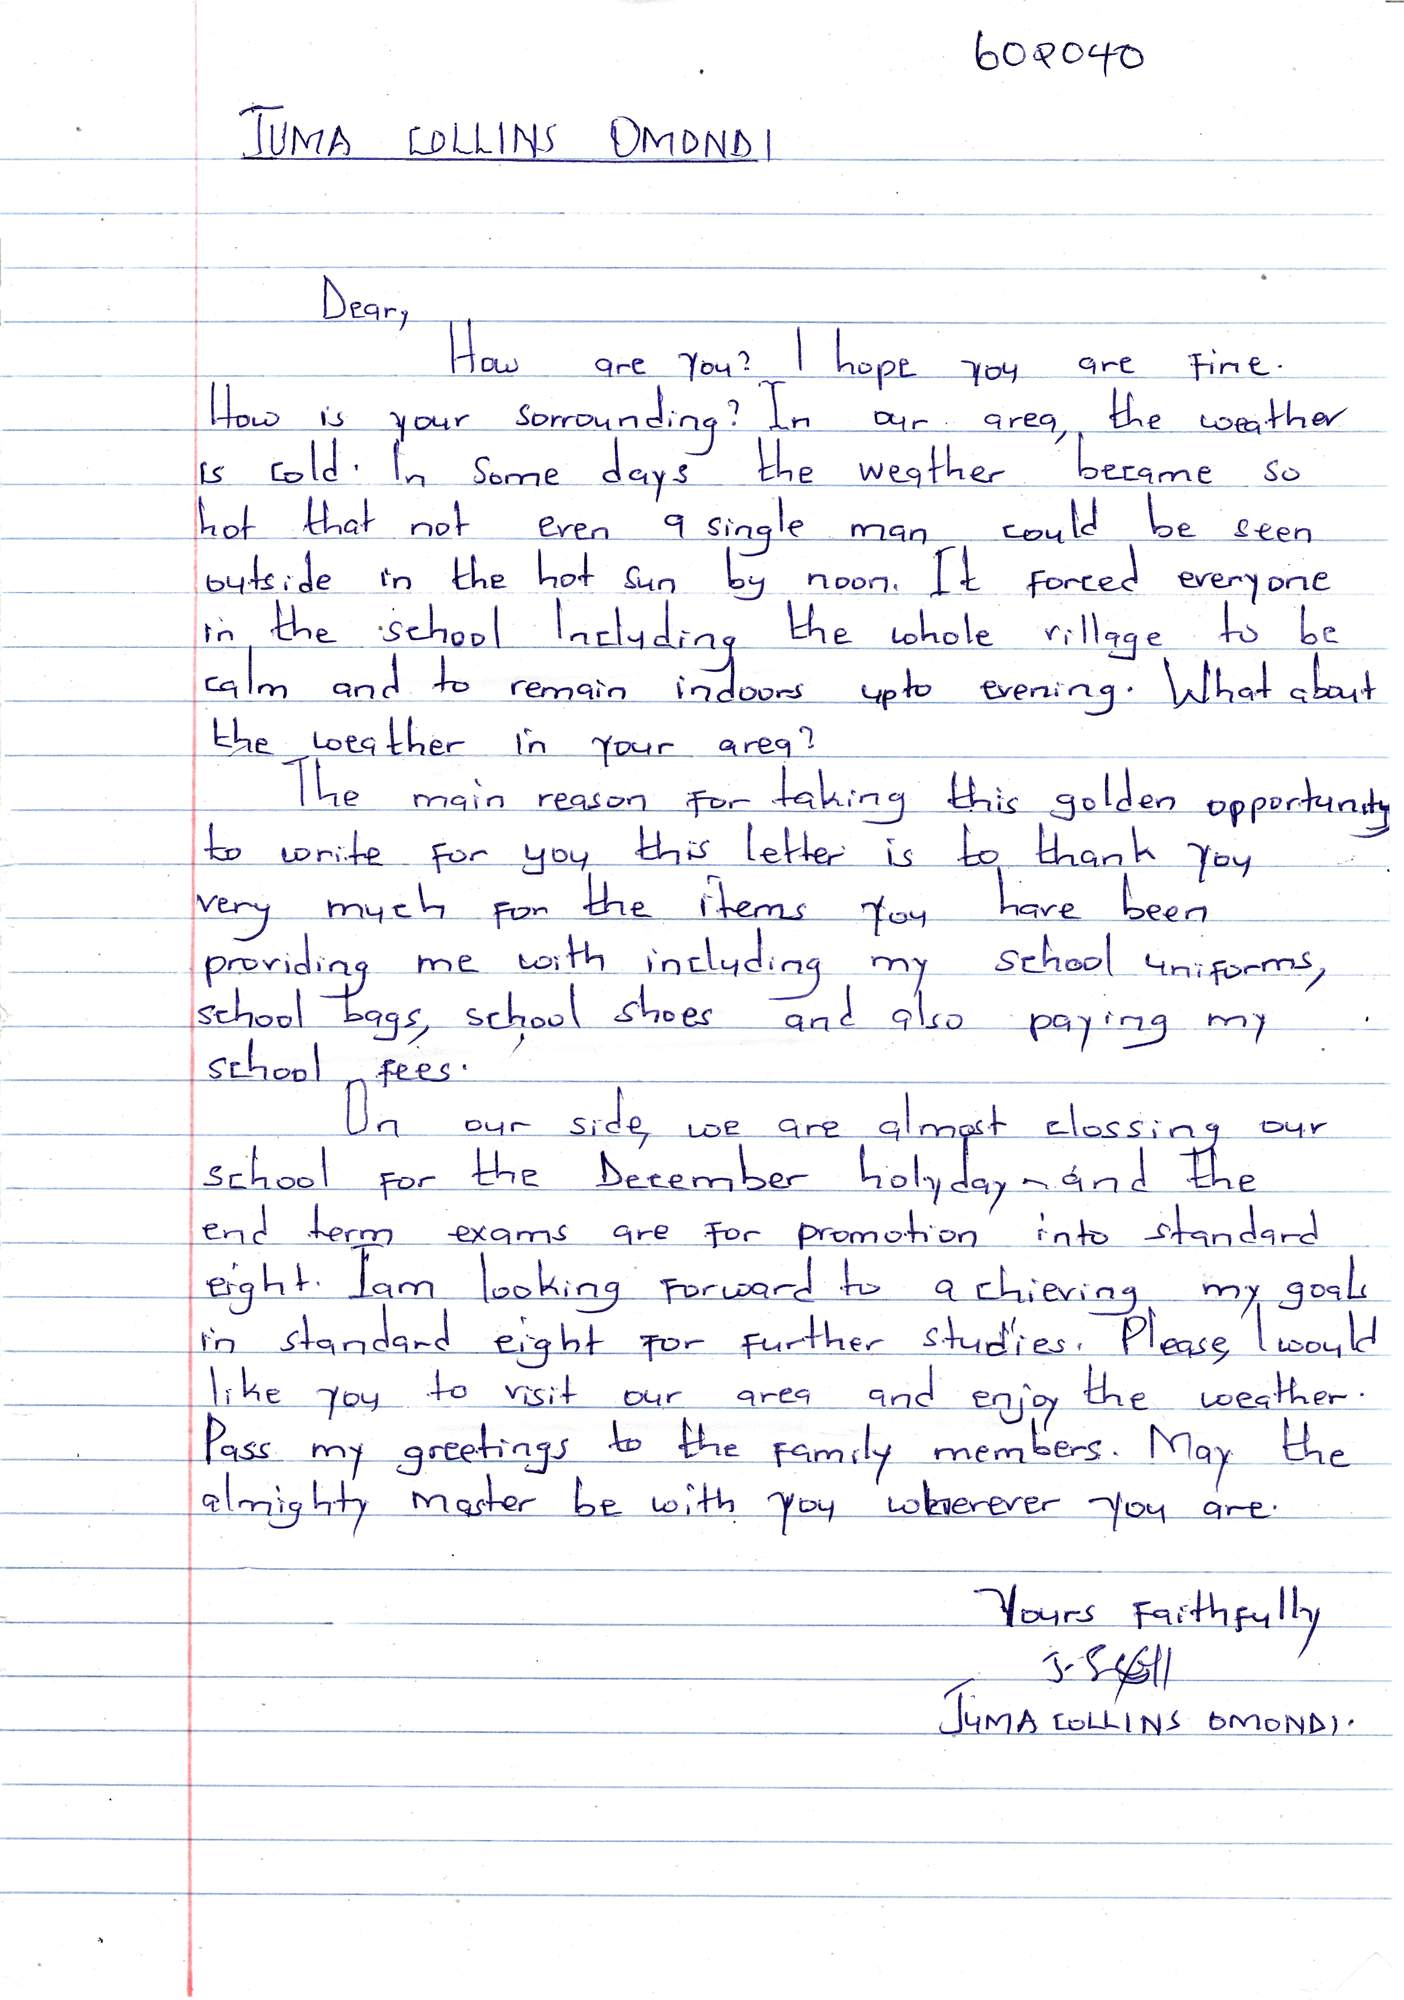 602040
JUMA COLLINS OMONDI
Dear,
How are you? I hope you are fine.
How is your sorrounding? In our area, the weather
is cold. In some days the weather became so
hot that not even a single man could be seen
outside in the hot sun by noon. It forced everyone
in the school Including the whole village to be
calm and to remain indoors upto evening. What about
the weather in your area?
The main reason for taking this golden opportunity
to write for you this letter is to thank you
very much for the items you have been
providing me with including my school uniforms,
school bags, school shoes and also paying my
school fees.
On our side, we are almost clossing our
school for the December holyday and the
end term exams are for promotion into standard
eight. Iam looking forward to achieving my goals
in standard eight for further studies. Please, I would
like you to visit our area and enjoy the weather.
Pass my greetings to the family members. May the
almighty master be with you wherever you are.
Yours Faithfully
JUMA COLLINS OMONDI.